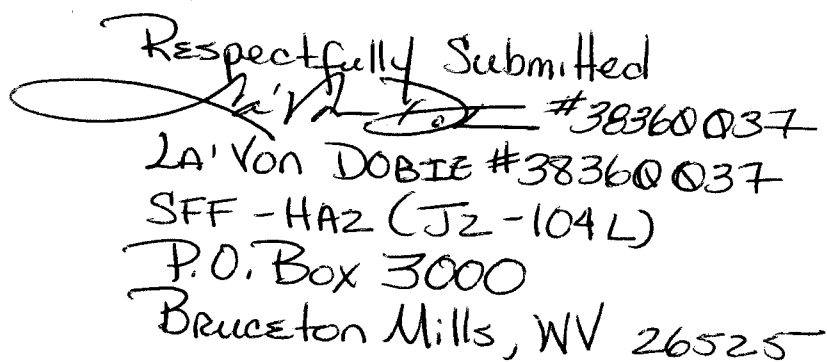 Respectfully Submitted
La'Von Do #38360037
LA'VON DOBIE #38360037
SFF-HAZ (J2-104L)
P.O. Box 3000
Bruceton Mills, WV 26525